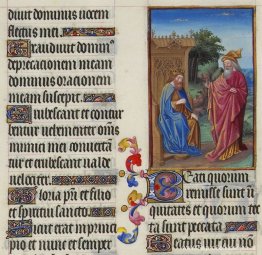 divit dominus vocem
fletus mei.
Exaudivit dominus
deprecationem meam
dominus orationem
meam suscepit.
Erubescant et contur
bentur vehementer omnes
inimici mei convertan
tur et erubescant valde
velociter.
Gloria patri et filio
et spiritui sancto.
Sicut erat in princi
pio et nunc et semper
Beati quorum
remisse sunt in
iquitates et quorum tec
ta sunt peccata.
Beatus vir cui non